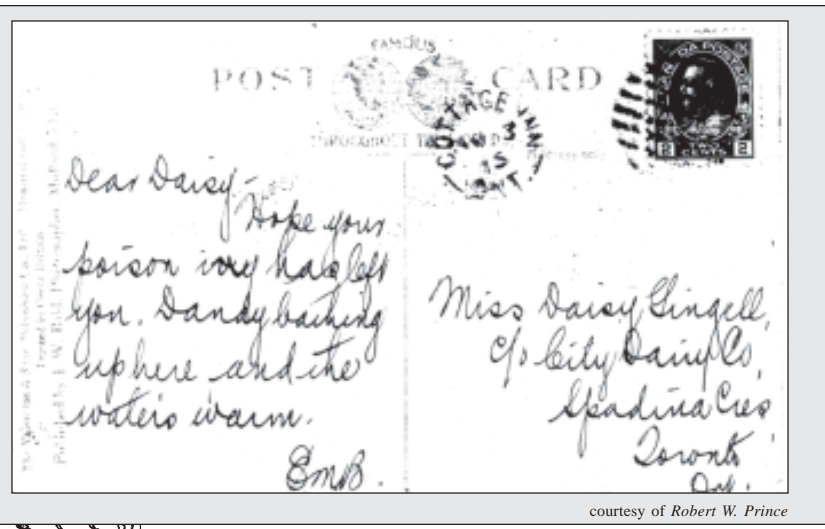 FAMOUS
POST CARD
THROUGHOUT THE WORLD
COTTAGE INN
3
15
ONT.
POSTAGE
2 CENTS 2
Dear Daisy -
Hope your
poison ivy has left
you. Dandy bathing
up here and the
waters warm.
EmB.
Miss Daisy Gingell,
c/o City Dairy Co,
Spadina Cres
Toronto
Ont.
courtesy of Robert W. Prince